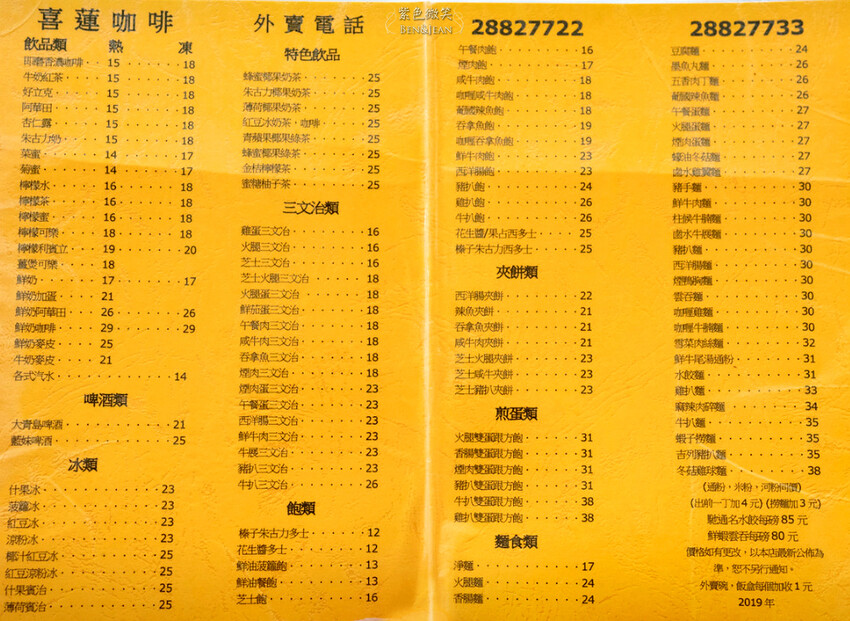 喜蓮咖啡
外賣電話
紫色微笑
BEN&JEAN
28827722
28827733
飲品類 熱 凍
再磨香濃咖啡 15 18
牛奶紅茶 15 18
好立克 15 18
阿華田 15 18
杏仁露 15 18
朱古力奶 15 18
菜蜜 14 17
菊蜜 14 17
檸檬水 16 18
檸檬茶 16 18
檸檬蜜 16 18
檸檬可樂 18 18
檸檬利賓立 19 20
薑煲可樂 18
鮮奶 17 17
鮮奶加蛋 21
鮮奶阿華田 26 26
鮮奶咖啡 29 29
鮮奶麥皮 25
牛奶麥皮 21
各式汽水 14
啤酒類
大青島啤酒 21
藍妹啤酒 25
冰類
什果冰 23
菠蘿冰 23
紅豆冰 23
涼粉冰 23
椰汁紅豆冰 25
紅豆涼粉冰 25
什果賓治 25
薄荷賓治 25
特色飲品
蜂蜜椰果奶茶 25
朱古力椰果奶茶 25
薄荷椰果奶茶 25
紅豆冰奶茶，咖啡 25
青蘋果椰果綠茶 25
蜂蜜椰果綠茶 25
金桔檸檬茶 25
蜜糖柚子茶 25
三文治類
雞蛋三文治 16
火腿三文治 16
芝士三文治 16
芝士火腿三文治 18
火腿蛋三文治 18
鮮茄蛋三文治 18
午餐肉三文治 18
咸牛肉三文治 18
吞拿魚三文治 18
煙肉三文治 18
煙肉蛋三文治 23
午餐蛋三文治 23
西洋腸三文治 23
鮮牛肉三文治 23
牛展三文治 23
豬扒三文治 23
牛扒三文治 26
飽類
榛子朱古力多士 12
花生醬多士 12
鮮油菠蘿飽 13
鮮油餐飽 13
芝士飽 16
午餐肉飽 16
煙肉飽 17
咸牛肉飽 18
咖喱咸牛肉飽 18
葡國辣魚飽 18
吞拿魚飽 19
咖喱吞拿魚飽 19
鮮牛肉飽 23
西洋腸飽 23
豬扒飽 24
雞扒飽 26
牛扒飽 26
花生醬/果占西多士 25
榛子朱古力西多士 25
夾餅類
西洋腸夾餅 22
辣魚夾餅 21
吞拿魚夾餅 21
咸牛肉夾餅 21
芝士火腿夾餅 23
芝士咸牛夾餅 23
芝士豬扒夾餅 23
煎蛋類
火腿雙蛋跟方飽 31
香腸雙蛋跟方飽 31
煙肉雙蛋跟方飽 31
豬扒雙蛋跟方飽 31
牛扒雙蛋跟方飽 38
雞扒雙蛋跟方飽 38
麵食類
淨麵 17
火腿麵 24
香腸麵 24
豆腐麵 24
墨魚丸麵 26
五香肉丁麵 26
葡國辣魚麵 26
午餐蛋麵 27
火腿蛋麵 27
煙肉蛋麵 27
蠔油冬菇麵 27
鹵水雞翼麵 27
豬手麵 30
鮮牛肉麵 30
柱候牛腩麵 30
鹵水牛展麵 30
豬扒麵 30
西洋腸麵 30
煙鴨胸麵 30
雲吞麵 30
咖喱雞麵 30
咖喱牛腩麵 30
雪菜肉絲麵 32
鮮牛尾湯通粉 31
水餃麵 31
雞扒麵 33
麻辣肉碎麵 34
牛扒麵 35
蝦子撈麵 35
吉列豬扒麵 35
冬菇雞球麵 38
(通粉，米粉，河粉同價)
(出前一丁加 4 元) (撈麵加 3 元)
馳通名水餃每磅 85 元
鮮蝦雲吞每磅 80 元
價格如有更改，以本店最新公佈為
準，恕不另行通知。
外賣碗，飯盒每個加收 1 元
2019 年